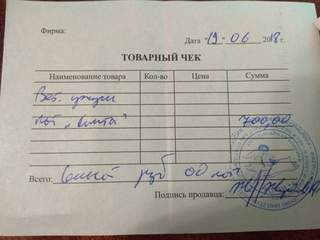 Фирма:
Дата "19" 06 2018 г.
ТОВАРНЫЙ ЧЕК
Наименование товара Кол-во Цена Сумма
Вет. услуги
700,00
Всего: руб 00 коп
Подпись продавца: